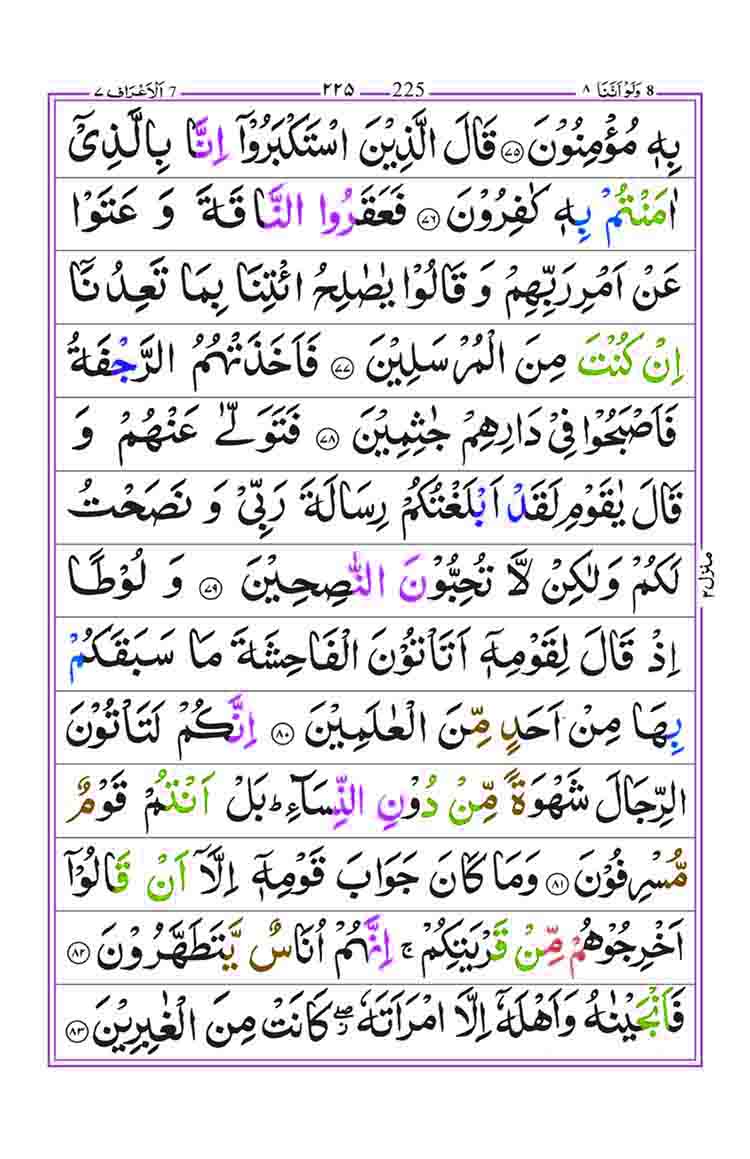 8 وَلَوْ اَنَّنَا ٨ 225 ٢٢٥ 7 اَلْاَعْرَاف ٧
بِهٖ مُؤْمِنُوْنَ ﴿٧٥﴾ قَالَ الَّذِيْنَ اسْتَكْبَرُوْۤا اِنَّا بِالَّذِيْۤ
اٰمَنْتُمْ بِهٖ كٰفِرُوْنَ ﴿٧٦﴾ فَعَقَرُوا النَّاقَةَ وَ عَتَوْا
عَنْ اَمْرِ رَبِّهِمْ وَ قَالُوْا يٰصٰلِحُ ائْتِنَا بِمَا تَعِدُنَاۤ
اِنْ كُنْتَ مِنَ الْمُرْسَلِيْنَ ﴿٧٧﴾ فَاَخَذَتْهُمُ الرَّجْفَةُ
فَاَصْبَحُوْا فِيْ دَارِهِمْ جٰثِمِيْنَ ﴿٧٨﴾ فَتَوَلّٰى عَنْهُمْ وَ
قَالَ يٰقَوْمِ لَقَدْ اَبْلَغْتُكُمْ رِسَالَةَ رَبِّيْ وَ نَصَحْتُ
لَكُمْ وَلٰكِنْ لَّا تُحِبُّوْنَ النّٰصِحِيْنَ ﴿٧٩﴾ وَ لُوْطًا
اِذْ قَالَ لِقَوْمِهٖۤ اَتَاْتُوْنَ الْفَاحِشَةَ مَا سَبَقَكُمْ
بِهَا مِنْ اَحَدٍ مِّنَ الْعٰلَمِيْنَ ﴿٨٠﴾ اِنَّكُمْ لَتَاْتُوْنَ
الرِّجَالَ شَهْوَةً مِّنْ دُوْنِ النِّسَآءِ ؕ بَلْ اَنْتُمْ قَوْمٌ
مُّسْرِفُوْنَ ﴿٨١﴾ وَمَا كَانَ جَوَابَ قَوْمِهٖۤ اِلَّاۤ اَنْ قَالُوْۤا
اَخْرِجُوْهُمْ مِّنْ قَرْيَتِكُمْ ۚ اِنَّهُمْ اُنَاسٌ يَّتَطَهَّرُوْنَ ﴿٨٢﴾
فَاَنْجَيْنٰهُ وَاَهْلَهٗۤ اِلَّا امْرَاَتَهٗ ۖؗ كَانَتْ مِنَ الْغٰبِرِيْنَ ﴿٨٣﴾
منزل ٢